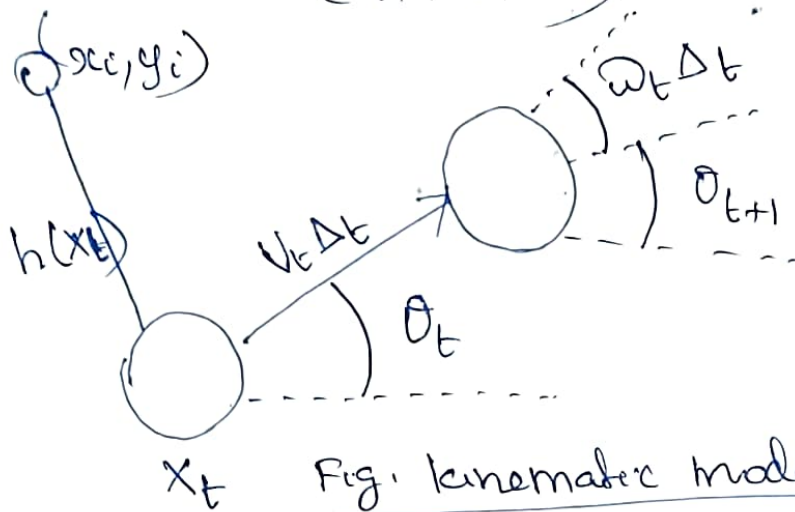 (xi, yi)
ω̂tΔt
θt+1
h(xt)
VtΔt
θt
Xt Fig. kinematic mod